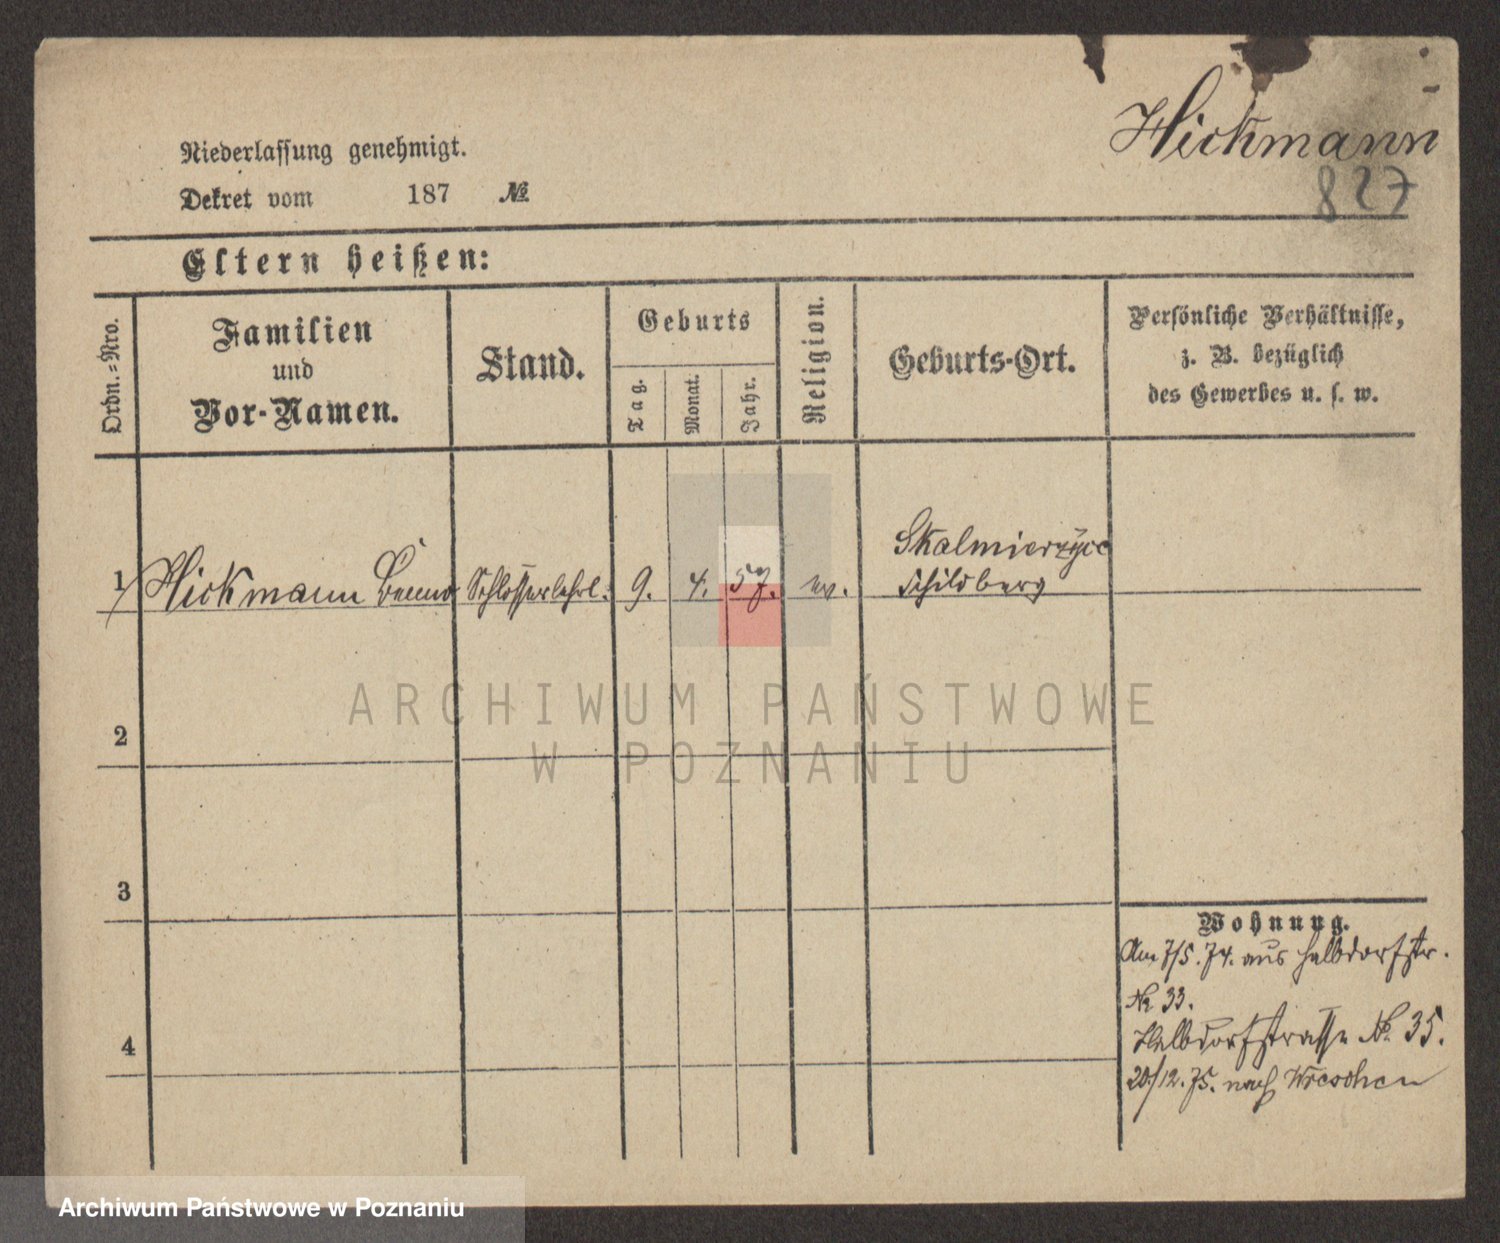 Hickmann
827
Niederlassung genehmigt.
Dekret vom 187 №
Eltern heißen:
Ordn.=Nro.
Familien
und
Vor-Namen.
Stand.
Geburts
Tag.
Monat.
Jahr.
Religion.
Geburts-Ort.
Persönliche Verhältnisse,
z. B. bezüglich
des Gewerbes u. s. w.
Skalmierzyce
1 Hickmann Benno Schlosserlehrl. 9. 4. 57. ev. Schildberg
ARCHIWUM PAŃSTWOWE
W POZNANIU
2
3
4
Wohnung.
Am 7/5. 74. aus Halbdorfstr.
№ 33.
Halbdorfstrasse № 35.
20/12. 75. nach Wreschen
Archiwum Państwowe w Poznaniu